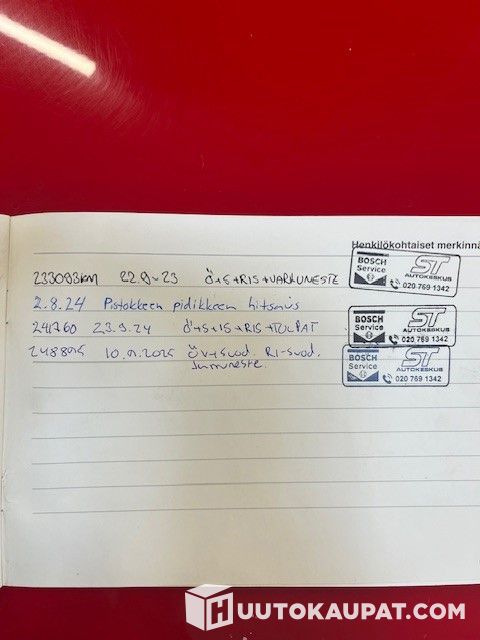 Henkilökohtaiset merkinnä
233093km 22.9-23 Ö+S+RIS+JARRUNESTE
BOSCH Service ST AUTOKESKUS 020 769 1342
2.8.24 Pistokkeen pidikkeen hitsaus
241760 23.9.24 Ö+S+IS+RIS+TULPAT
BOSCH Service ST AUTOKESKUS 020 769 1342
248895 2025 ÖV+Suod. RI-Suod.
Jarruneste.
BOSCH Service ST AUTOKESKUS 020 769 1342
HUUTOKAUPAT.COM